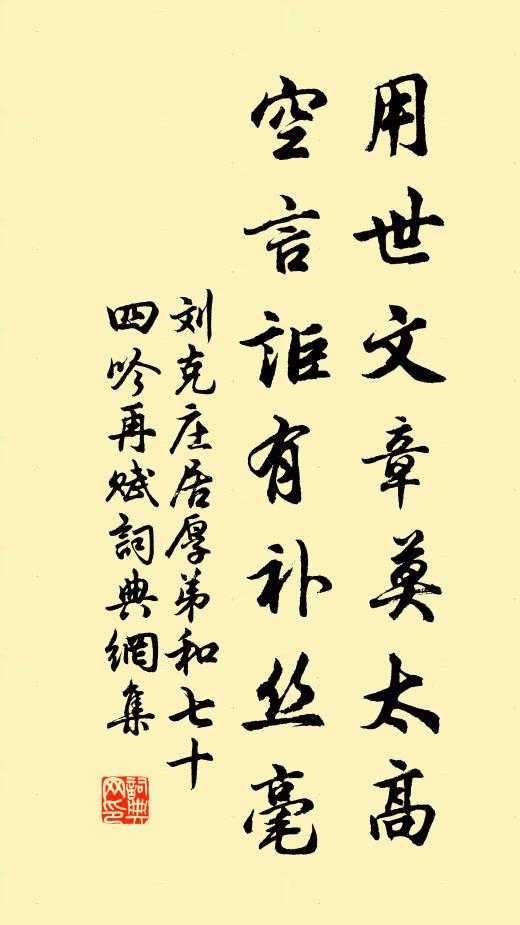 用世文章莫太高
空言詎有补丝毫
刘克庄居厚弟和七十
四吟再赋詞典網集
詞典网印